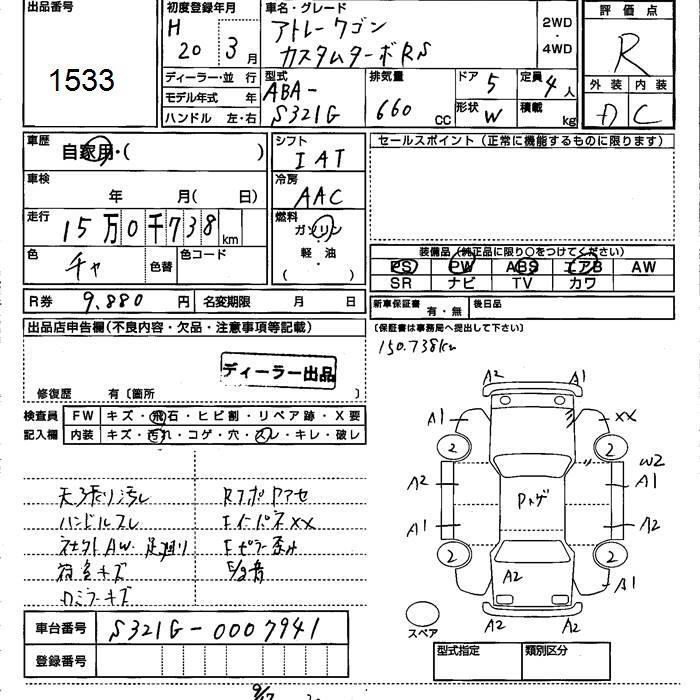 出品番号
1533
初度登録年月
H
20 3月
車名・グレード
アトレーワゴン
カスタムターボRS
2WD
・
4WD
評価点
R
外装 内装
D C
ディーラー・並 行
モデル年式 年
ハンドル 左・右
型式
ABA-
S321G
排気量
660 cc
ドア 5
形状 W
定員 4人
積載 kg
車歴
自家用・( )
車検
年 月( 日)
走行
15万0千738km
色 チャ 色替 色コード
シフト
IAT
冷房
AAC
燃料
ガソリン
軽・油
( )
セールスポイント(正常に機能するものに限ります)
装備品(純正品に限り○をつけてください)
PS PW ABS エアB AW
SR ナビ TV カワ
R券 9.880 円 名変期限 月 日
新車保証書 有・無 後日品
(保証書は事務局へ提出して下さい)
150.738km
出品店申告欄(不良内容・欠品・注意事項等記載)
ディーラー出品
修復歴 有〔箇所 〕
検査員
記入欄
FW キズ・飛石・ヒビ割・リペア跡・X要
内装 キズ・汚れ・コゲ・穴・スレ・キレ・破レ
天張り汚レ
ハンドルスレ
社外AW・足廻り
荷室キズ
ロミラーキズ
FインパネXX
Fピラー歪み
E/g音
A2 A1
A1 XX
2 2
W2
A2 A1
Pトゲ
A1 A2
2 2
A2
A1
A2 A2
スペア
車台番号 S321G-0007941
登録番号
型式指定 類別区分